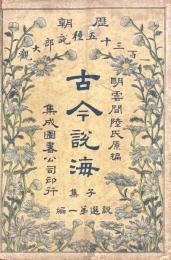 歷朝
一百三十五種說部大觀
明雲間陸氏原編
古今說海
集成圖書公司印行
子集
說選第一編